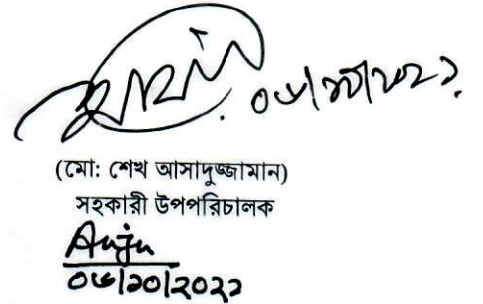 ০৬/১০/২০২১
(মো: শেখ আসাদুজ্জামান)
সহকারী উপপরিচালক
Anju
০৬/১০/২০২১